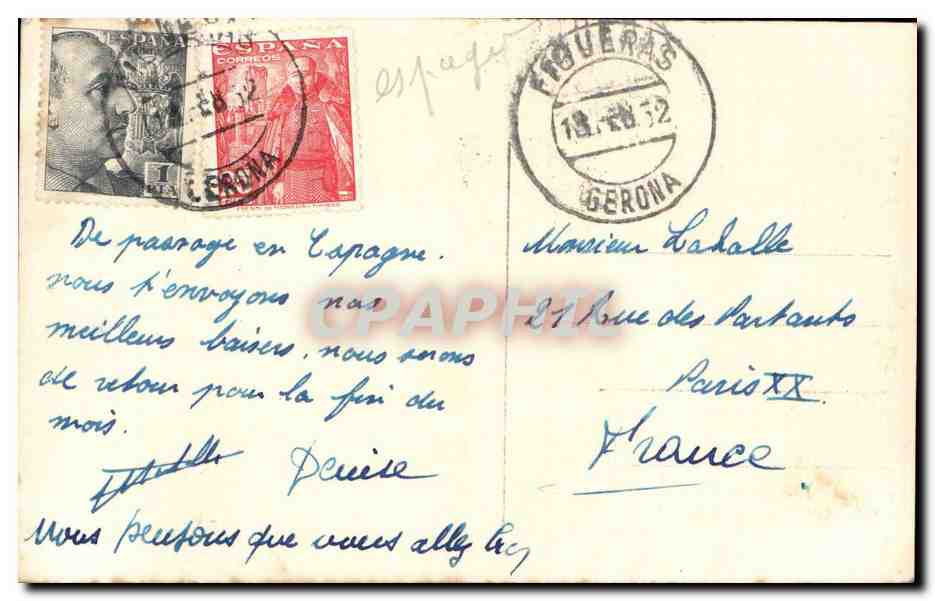 ESPAÑA
1
PTA
ESPAÑA
CORREOS
GERONA
espagne
FIGUERAS
18 FEB 52
GERONA
De passage en Espagne.
nous t'envoyons nos
meilleurs baisers. nous serons
de retour pour la fin du
mois.
Denise
Nous pensons que vous allez bien
Monsieur Lahalle
21 Rue des Partants
Paris XX.
France
CPAPHIL